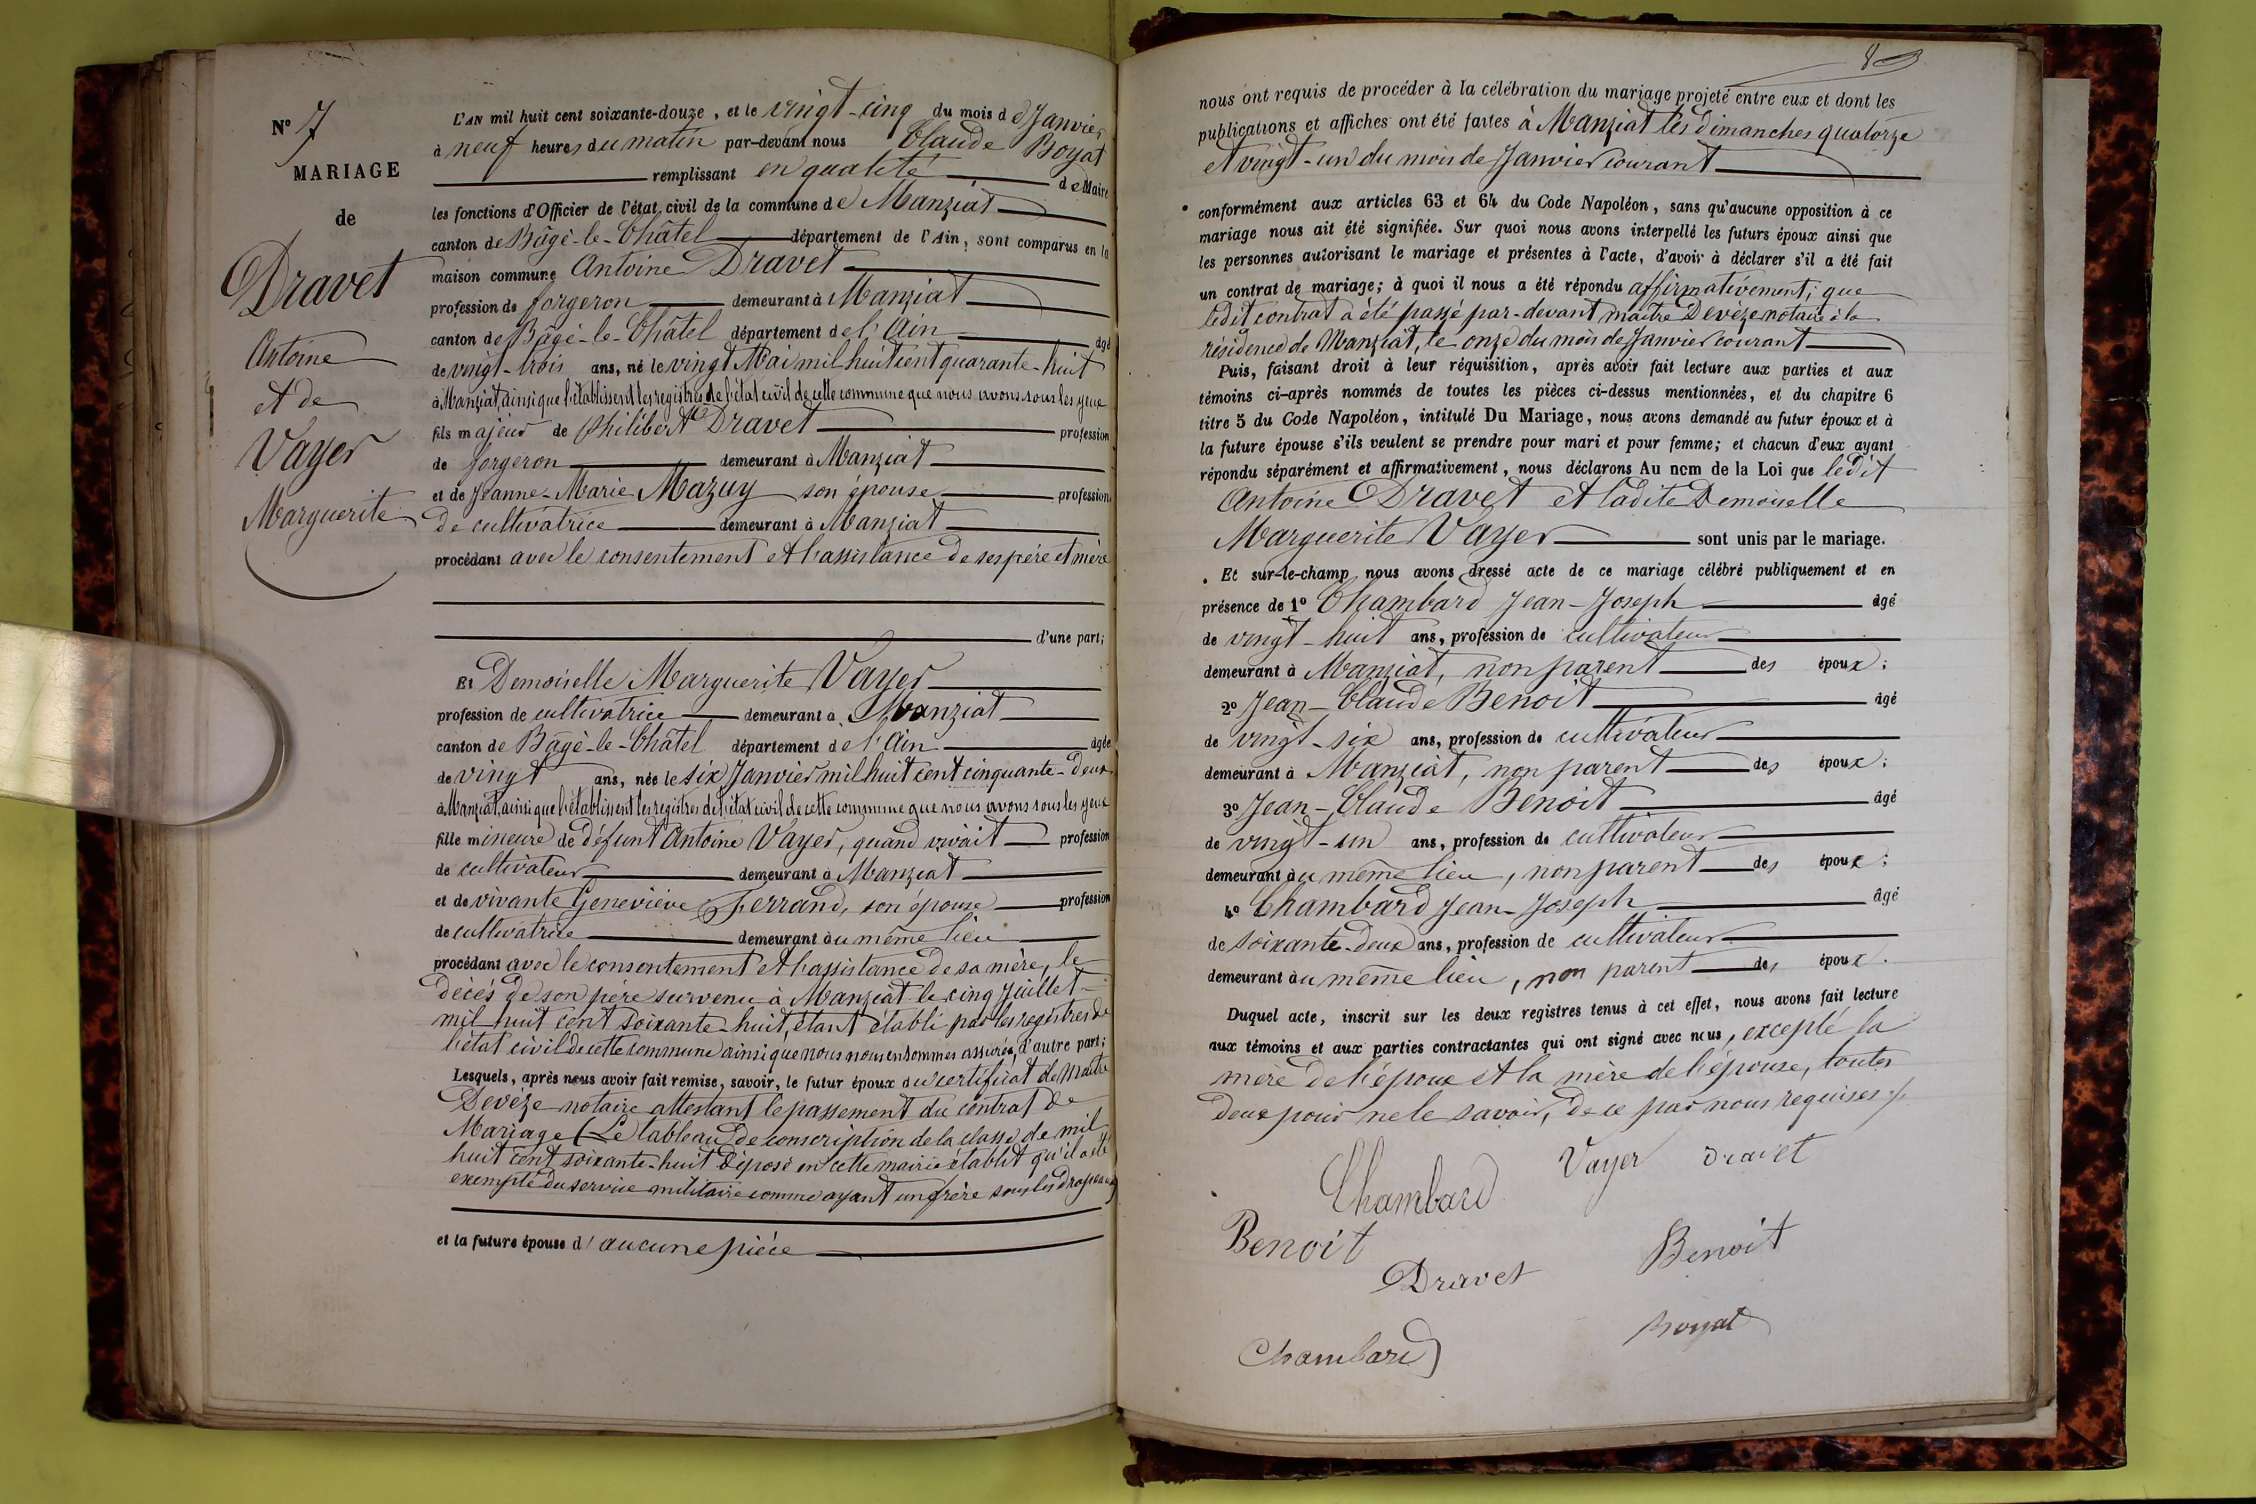 N° 7
MARIAGE
de
Dravet
Antoine
et de
Vayer
Marguerite
L'AN mil huit cent soixante-douze, et le vingt-cinq du mois d e Janvier
à neuf heures du matin par-devant nous Claude Boyat
remplissant en qualité de Maire
les fonctions d'Officier de l'état civil de la commune de Manziat
canton de Bâgé-le-Châtel département de l'Ain, sont comparus en la
maison commune Antoine Dravet
profession de forgeron demeurant à Manziat
canton de Bâgé-le-Châtel département de l'Ain âgé
de vingt-trois ans, né le vingt Mai mil huit cent quarante-huit
à Manziat, ainsi que l'établissent les registres de l'état civil de cette commune que nous avons sous les yeux
fils majeur de Philibert Dravet profession
de forgeron demeurant à Manziat
et de Jeanne-Marie Mazuy son épouse profession
de cultivatrice demeurant à Manziat
procédant avec le consentement et l'assistance de ses père et mère
d'une part;
Et Demoiselle Marguerite Vayer
profession de cultivatrice demeurant à Manziat
canton de Bâgé-le-Châtel département de l'Ain âgée
de vingt ans, née le six Janvier mil huit cent cinquante-deux
à Manziat, ainsi que l'établissent les registres de l'état civil de cette commune que nous avons sous les yeux
fille mineure de défunt Antoine Vayer, quand vivait profession
de cultivateur demeurant à Manziat
et de vivante Geneviève Ferrand, son épouse profession
de cultivatrice demeurant au même lieu
procédant avec le consentement et l'assistance de sa mère, le
décès de son père survenu à Manziat le cinq Juillet
mil huit cent soixante-huit, étant établi par les registres de
l'état civil de cette commune ainsi que nous nous en sommes assurés, d'autre part;
Lesquels, après nous avoir fait remise, savoir, le futur époux du certificat de Maître
Devèze notaire attestant le passement du contrat de
Mariage (Le tableau de conscription de la classe de mil
huit cent soixante-huit déposé en cette mairie établit qu'il a été
exempté du service militaire comme ayant un frère sous les drapeaux)
et la future épouse d'aucune pièce
8
nous ont requis de procéder à la célébration du mariage projeté entre eux et dont les
publications et affiches ont été faites à Manziat les dimanches quatorze
et vingt-un du mois de Janvier courant
conformément aux articles 63 et 64 du Code Napoléon, sans qu'aucune opposition à ce
mariage nous ait été signifiée. Sur quoi nous avons interpellé les futurs époux ainsi que
les personnes autorisant le mariage et présentes à l'acte, d'avoir à déclarer s'il a été fait
un contrat de mariage; à quoi il nous a été répondu affirmativement; que
ledit contrat a été passé par-devant maître Devèze notaire à la
résidence de Manziat, le onze du mois de Janvier courant
Puis, faisant droit à leur réquisition, après avoir fait lecture aux parties et aux
témoins ci-après nommés de toutes les pièces ci-dessus mentionnées, et du chapitre 6
titre 5 du Code Napoléon, intitulé Du Mariage, nous avons demandé au futur époux et à
la future épouse s'ils veulent se prendre pour mari et pour femme; et chacun d'eux ayant
répondu séparément et affirmativement, nous déclarons Au nom de la Loi que ledit
Antoine Dravet et ladite Demoiselle
Marguerite Vayer sont unis par le mariage.
Et sur-le-champ nous avons dressé acte de ce mariage célébré publiquement et en
présence de 1° Chambard Jean-Joseph âgé
de vingt-huit ans, profession de cultivateur
demeurant à Manziat, non parent des époux;
2° Jean-Claude Benoit âgé
de vingt-six ans, profession de cultivateur
demeurant à Manziat, non parent des époux;
3° Jean-Claude Benoit âgé
de vingt-un ans, profession de cultivateur
demeurant au même lieu, non parent des époux;
4° Chambard Jean-Joseph âgé
de soixante-deux ans, profession de cultivateur
demeurant au même lieu, non parent des époux.
Duquel acte, inscrit sur les deux registres tenus à cet effet, nous avons fait lecture
aux témoins et aux parties contractantes qui ont signé avec nous, excepté la
mère de l'époux et la mère de l'épouse, toutes
deux pour ne le savoir, de ce par nous requises
Vayer Dravet
Chambard
Benoit Benoit
Dravet
Boyat
Chambard